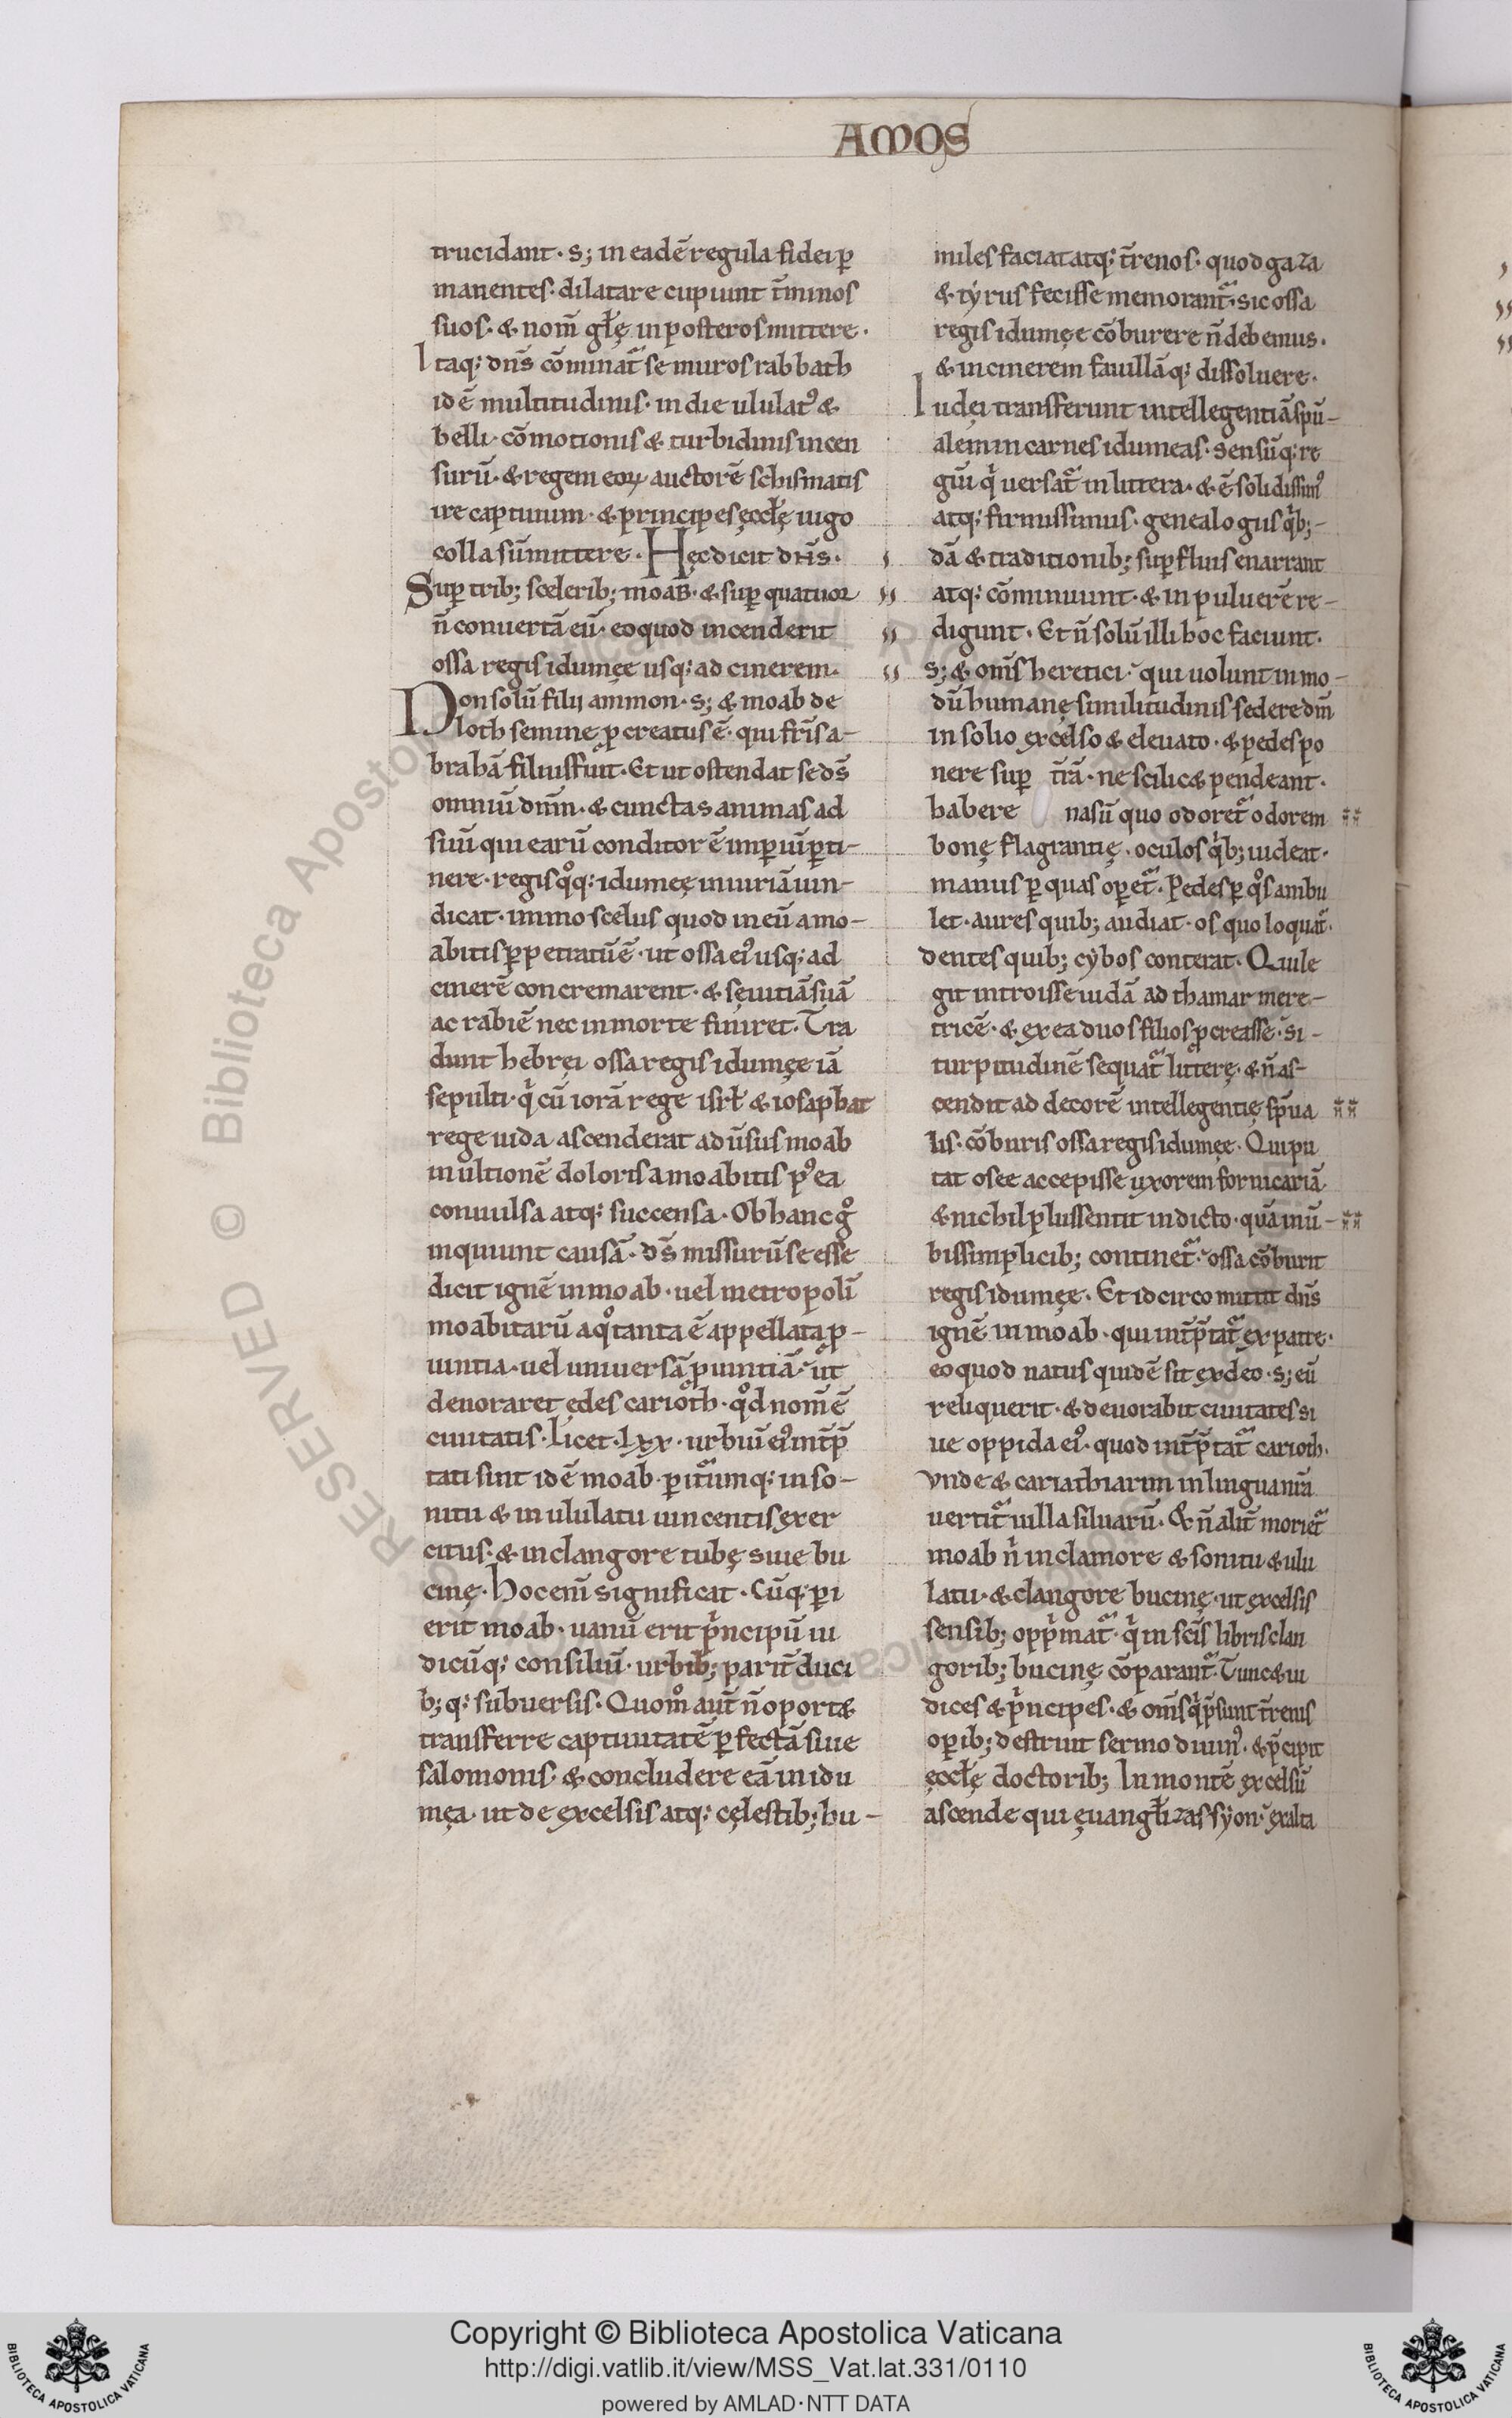 AMOS
trucidant · s; in eadē regula fidei ꝑ
manentes· dilatare cupiunt t̄minos
suos· & nom̄ gl̄ę in posteros mittere·
Itaq; dn̄s cōminat᷑ se muros rabbath
idē multitudinis· in die ululatꝰ &
belli· cōmotionis & turbidinis incen
surū· & regem eoꝝ auctorē schismatis
ire captiuum· & principes ęccl̄ę iugo
colla sūmittere· Hęc dicit dn̄s·
Suꝑ trib; scelerib; moab· & suꝑ quatuor
n̄ conuertā eū· eo quod incenderit
ossa regis idumęe usq; ad cinerem·
Non solū filij ammon· s; & moab de
loth semine ꝓcreatus ē· qui fr̄is a-
brahā filius fuit· Et ut ostendat se ds̄
omniū dn̄m· & cunctas animas ad
suū qui earū conditor ē imꝑiū ꝑti-
nere· regis qͦq; idumęę iniuriā uin-
dicat· immo scelus quod in eū a mo-
abitis ꝑpetratū ē· ut ossa eiꝰ usq; ad
cinerē concremarent· & sęuitiā suā
ac rabiē nec in morte finiret· Tra
dunt hebręi ossa regis idumęe iā
sepulti· qͥ cū iorā rege isrl̄ & iosaphat
rege iuda ascenderat aduūsus moab
in ultionē doloris a moabitis pꝰea
conuulsa atq; succensa· Ob hanc gͦ
inquiunt causā· ds̄ missurū se esse
dicit ignē in moab· uel metropoli
moabitarū a qͦ tanta ē appellata ꝓ-
uintia· uel uniuersā ꝓuintiā· ut
deuoraret ędes carioth· qͦd nom̄ ē
ciuitatis· Licet· lxx· urbiū eiꝰ int̄p̄
tati sint idē moab· ꝑitum̄q; in so-
nitu & in ululatu uincentis exer
citus· & in clangore tubę siue bu
cinę· Hoc eni̅ significat· Cūq; ꝑi
erit moab· uanū erit pͥncipū iu
dicūq; consiliū· urbib; parit̄ duci
b;q; subuersis· Quom̊ aut̄ n̄ oport&
transferre captiuitatē ꝑfectā siue
salomonis· & concludere eā in idu
męa· ut de excelsis atq; cęlestib; hu-
miles faciat atq; t̄renos· quod gaza
& tyrus fecisse memorant᷑· sic ossa
regis idumęe cōburere n̄ debemus·
& in cinerem fauillāq; dissoluere·
Iudęi transferunt intellegentiā spū-
alem in carnes idumeas· Sensūq; re
giū qͥ uersat᷑ in littera· & ē solidissimꝰ
atq; firmissimus· genealogiis qͥb;-
dā & traditionib; suꝑfluis enarrant
atq; cōminuunt· & in puluerē re-
digunt· Et n̄ solū illi hoc faciunt·
s; & om̄s heretici· qui uolunt in mo-
dū humanę similitudinis sedere dn̄m
in solio excelso & eleuato· & pedes po
nere suꝑ t̄rā· ne scilic& pendeant·
habere nasū quo odoret᷑ odorem
bonę flagrantię· oculos qͥb; uideat·
manus ꝑ quas oꝑet᷑· Pedes ꝑ qͦs ambu
let· aures quib; audiat· os quo loquat᷑·
dentes quib; cybos conterat· Qui le
git introisse iudā ad thamar mere-
tricē· & ex ea duos filios ꝓcreasse· si-
turpitudinē sequat᷑ litterę· & n̄ as-
cendit ad decorē intellegentię sp̄ua
lis· cōburis ossa regis idumęe· Qui pu
tat osee accepisse uxorem fornicariā
& nichil plus sentit in dicto· quā in ū-
bis simplicib; continet᷑· ossa cōburit
regis idumęe· Et idcirco mittit dn̄s
ignē in moab· qui int̄p̄tat᷑ ex patre·
eo quod natus quidē sit ex deo· s; eū
reliquerit· & deuorabit ciuitates si
ue oppida eiꝰ· quod int̄p̄tat᷑ carioth·
vnde & cariathiarim in lingua nr̄a
uertit᷑ uilla siluarū· Et n̄ alit̄ moriet᷑
moab nͥ in clamore & sonitu & ulu
latu· & clangore bucinę· ut excelsis
sensib; oppͥmat᷑· qͥ in scīs libris clan
gorib; bucinę cōparant᷑· Tunc & iu
dices & pͥncipes· & om̄s qͥ p̄sunt t̄renis
oꝑib; destruit sermo diuinꝰ· & p̄cipit
ęccl̄ę doctorib; In montē excelsū
ascende qui ęuangl̄izas syon· exalta
Copyright © Biblioteca Apostolica Vaticana
http://digi.vatlib.it/view/MSS_Vat.lat.331/0110
powered by AMLAD·NTT DATA
BIBLIOTECA APOSTOLICA VATICANA
BIBLIOTECA APOSTOLICA VATICANA